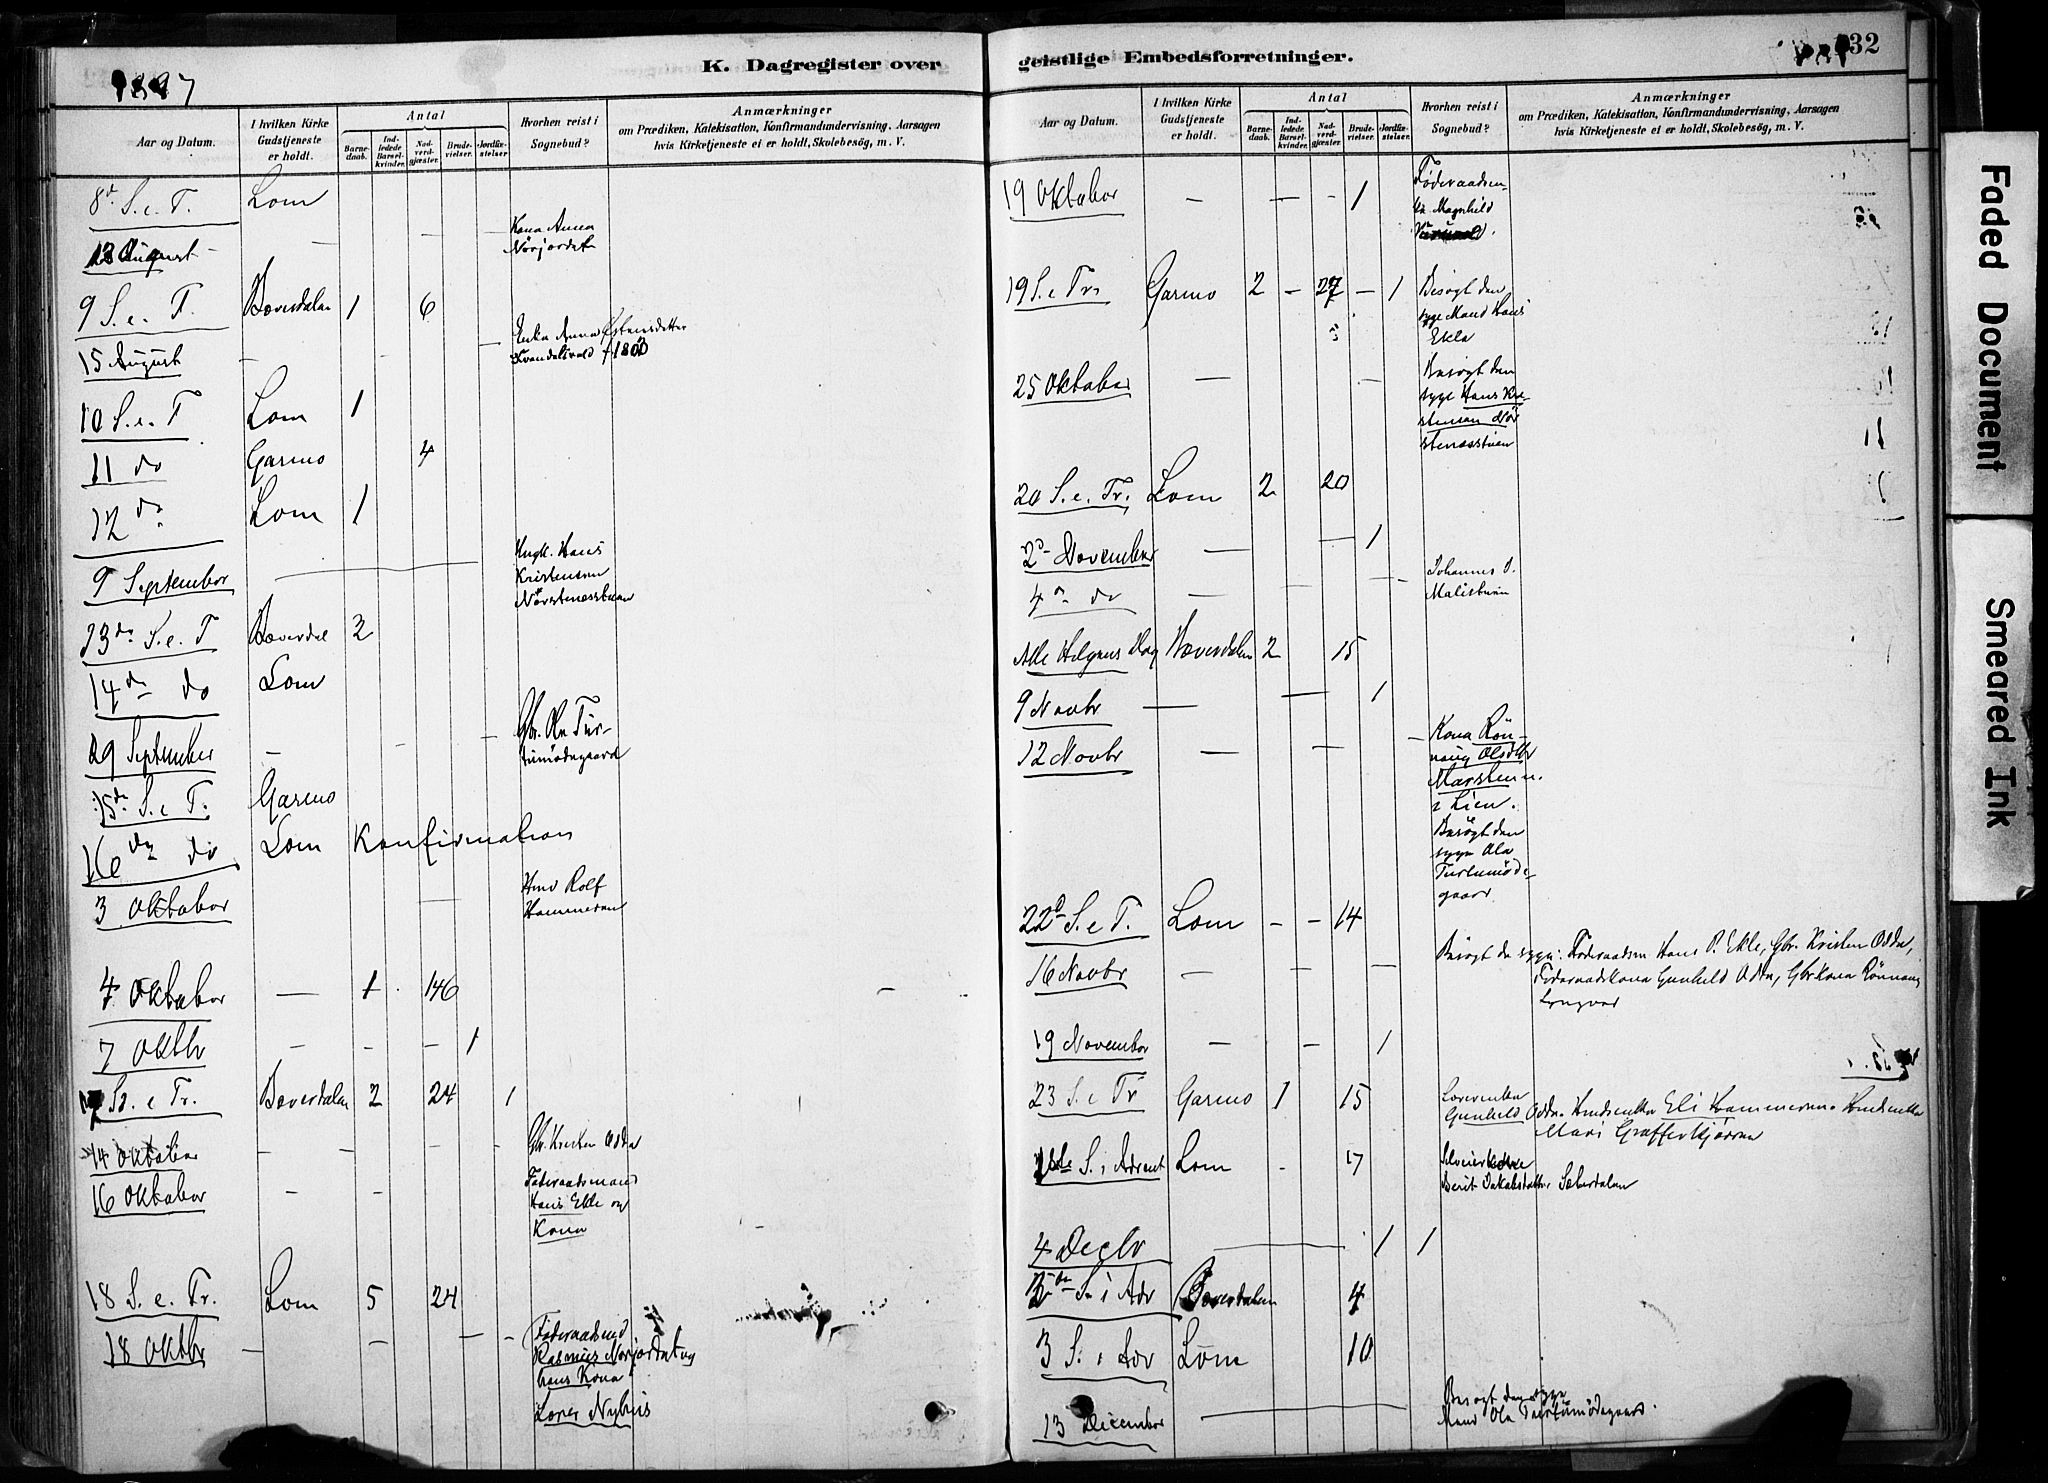 K. Dagregister over
1897
Aar og Datum.
I hvilken Kirke Gudstjeneste er holdt.
Antal
Barnedaab.
Indledede Barselkvinder.
Nadverdgjæster.
Brudevielser.
Jordfæstelser
Hvorhen reist i Sognebud?
Anmærkninger
om Prædiken, Katekisation, Konfirmandundervisning, Aarsagen
hvis Kirketjeneste ei er holdt, Skolebesøg, m. V.
8d S. e. T. Lom
13 August – – – – Kona Anna
Nörjordet
9 S. e. T. Bæverdalen 1 6
15 August – – – Enka Anna Östensdatter
10 S. e. T Lom 1
11 do Garmo 4
12 do Lom 1
9 September Ungk. Hans
Kristensen
Nörstenæsstuen
13de S. e. T Bæverdal 2
14de do Lom
29 September – – – Gbr. Ola Tur-
tumödegaard
15de S. e T. Garmo
16de do Lom Konfirmation
3 Oktober – Hmd Rolf
Hammeren
4 Oktober – 1 146
7 Oktbr – – – 1
17 S. e Tr. Bæverdalen 2 24 1
14 Oktober – – – – Gbr. Kristen Odda
16 Oktober – – Föderaadsmand
Hans Ekle og
Kona
18 S. e. Tr. Lom 5 24
18 Oktbr – – – – Föderaadsmd
Rasmus Norjordet og
hans Kona
Lars Nyhus
geistlige Embedsforretninger.
32
Aar og Datum.
I hvilken Kirke Gudstjeneste er holdt.
Antal
Barnedaab.
Indledede Barselkvinder.
Nadverdgjæster.
Brudevielser.
Jordfæstelser.
Hvorhen reist i Sognebud?
Anmærkninger
om Prædiken, Katekisation, Konfirmandundervisning, Aarsagen
hvis Kirketjeneste ei er holdt, Skolebesög, m. V.
19 Oktober – – – 1 Föderaadsen-
ke Magnhild
19 S. e Tr. Garmo 2 – 27 – 1 Besögt den
syge Mand Hans
Ekle
25 Oktober – – Besögt den
syge Hans Kri-
stensen Nör
stenæsstuen
20 S. e. Tr. Lom 2 20
2d November – – 1
4d do – – – Johannes O.
Malistuen
Alle Helgens Dag Bæverdalen 2 15
9 Novbr – – 1
12 Novbr – – – Kona Rön-
naug Olsdtr
Marstein
i Lien.
Besögt den
syge Ola
Turtumöde-
gaard
22d S. e T. Lom – – 14
16 Novbr – – – Besögt de syge: Föderaadsm Hans P. Ekle, Gbr. Kristen Odda,
Föderaadskona Gunhild Odda, Gbrkona Rönnaug
Lyngved
19 November – – 1
23 S. e Tr Garmo 1 15
Gunhild Odda. Hmdsenka Eli Hammeren. Hmdsenka
Mari Graffertkjærn
1ste S. i Advent Lom - 17
Berit Jakobsdatter Sæterdalen
4 Decbr – 1 1
2den S. i Adv Bæverdalen 4
3 S. i Adv Lom 10
13 December – Besögt den syge
Mand Ola Turtumödegaard.
Faded Document
Smeared Ink